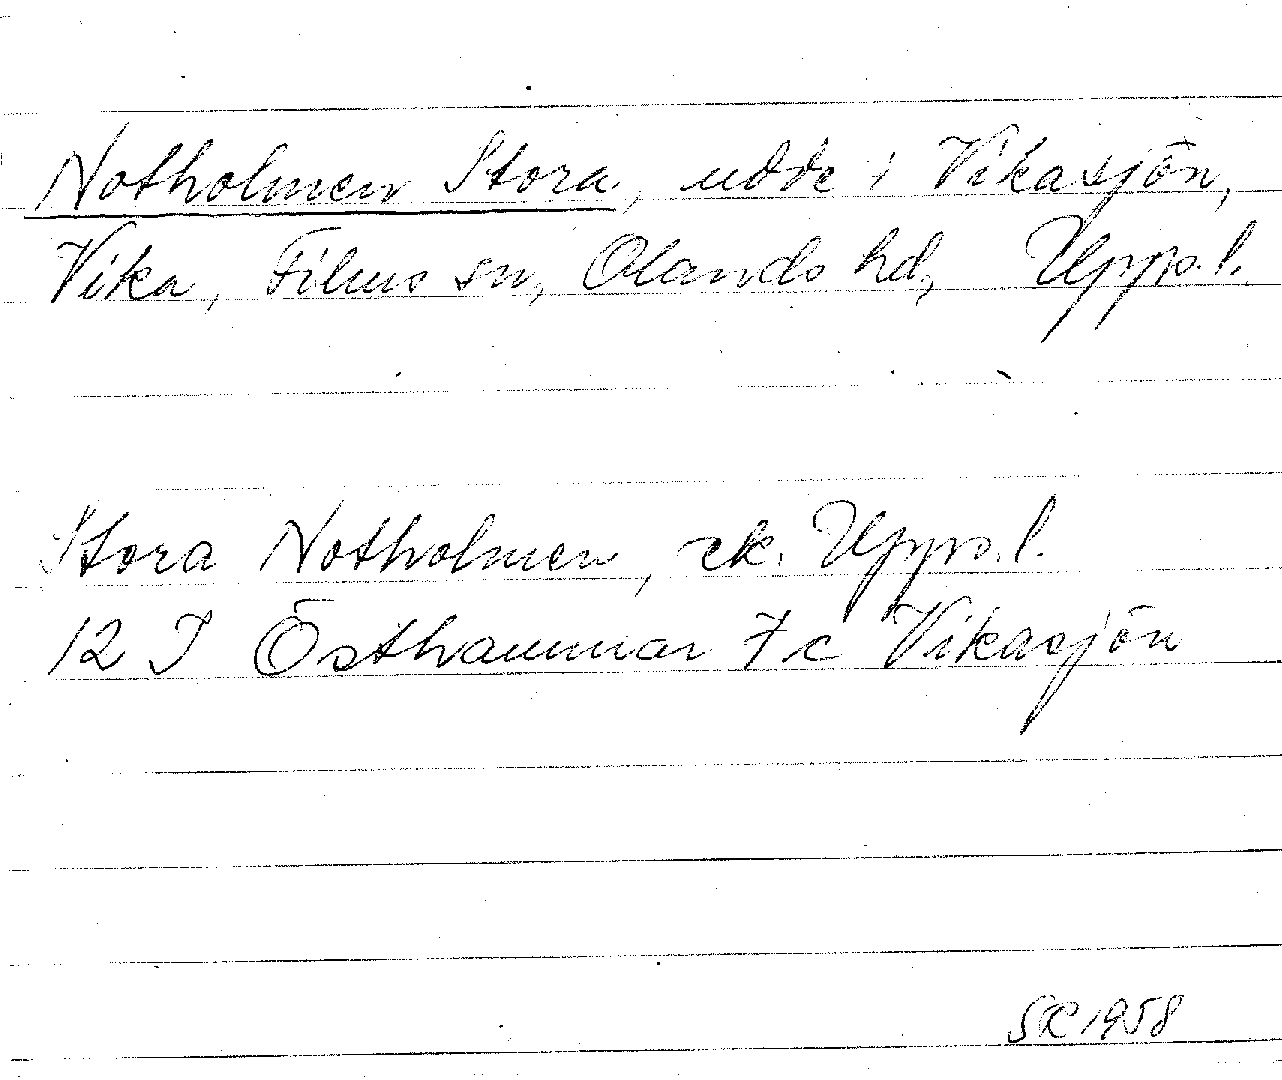 Notholmen Stora, udde i Vikasjön,
Vika, Films sn, Olands hd, Upps.l.
Stora Notholmen, ek. Upps.l.
12 I Östhammar 7c Vikasjön
SR 1958